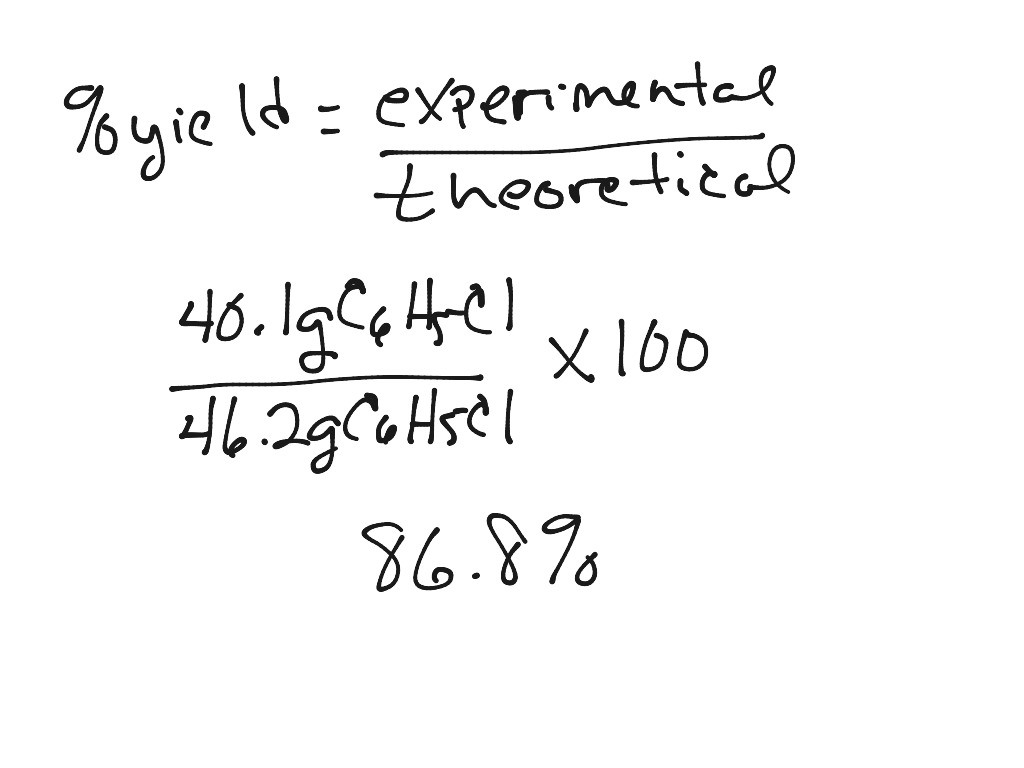 %yield = experimental
theoretical
40.1gC6H5Cl
x100
46.2gC6H5Cl
86.8%